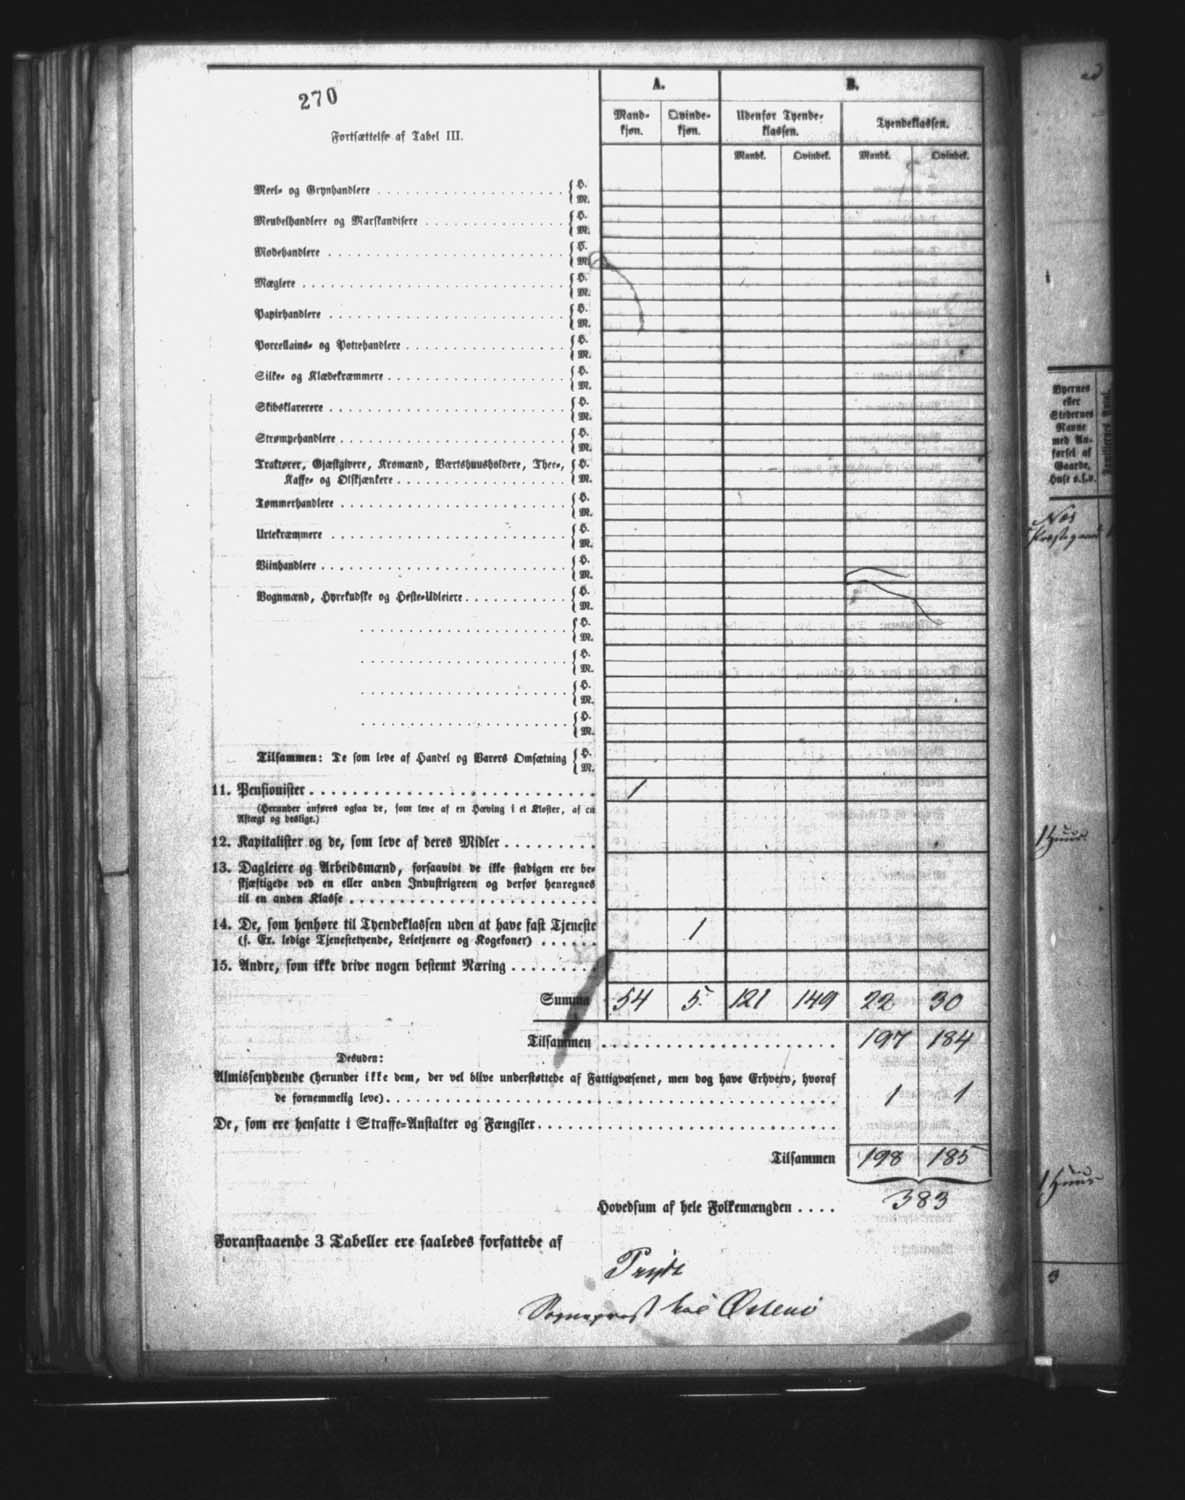 270
Fortsættelse af Tabel III.
A.
B.
Mand-
kjøn.
Qvinde-
kjøn.
Udenfor Tyende-
klassen.
Tyendeklassen.
Mandk.
Qvindek.
Mandk.
Qvindek.
Meel- og Grynhandlere { H.
M.
Meubelhandlere og Marskandisere { H.
M.
Modehandlere { H.
M.
Mæglere { H.
M.
Papirhandlere { H.
M.
Porcellains- og Pottehandlere { H.
M.
Silke- og Klædekræmmere { H.
M.
Skibsklarerere { H.
M.
Strømpehandlere { H.
M.
Traktører, Gjæstgivere, Kromænd, Værtshuusholdere, Thee-, { H.
Kaffe- og Ølskjænkere M.
Tømmerhandlere { H.
M.
Urtekræmmere { H.
M.
Viinhandlere { H.
M.
Vognmænd, Hyrekudske og Heste-Udleiere { H.
M.
{ H.
M.
{ H.
M.
{ H.
M.
{ H.
M.
Tilsammen: De som leve af Handel og Varers Omsætning { H.
M.
11. Pensionister 1
(Herunder anføres ogsaa de, som leve af en Hæving i et Kloster, af en
Aftægt og deslige.)
12. Kapitalister og de, som leve af deres Midler
13. Dagleiere og Arbeidsmænd, forsaavidt de ikke stadigen ere be-
skjæftigede ved en eller anden Industrigreen og derfor henregnes
til en anden Klasse
14. De, som henhøre til Tyendeklassen uden at have fast Tjeneste
(f. Ex. ledige Tjenestetyende, Leietjenere og Kogekoner) 1
15. Andre, som ikke drive nogen bestemt Næring
Summa 54 5 121 149 22 30
Tilsammen 197 184
Desuden:
Almissenydende (herunder ikke dem, der vel blive understøttede af Fattigvæsenet, men dog have Erhverv, hvoraf
de fornemmelig leve) 1 1
De, som ere hensatte i Straffe-Anstalter og Fængsler
Tilsammen 198 185
Hovedsum af hele Folkemængden 383
Foranstaaende 3 Tabeller ere saaledes forfattede af
Sognepræst
Byernes
eller
Stedernes
Navne
med An-
førsel af
Gaarde,
Huse o.s.v.
1 Huus
1 Huus